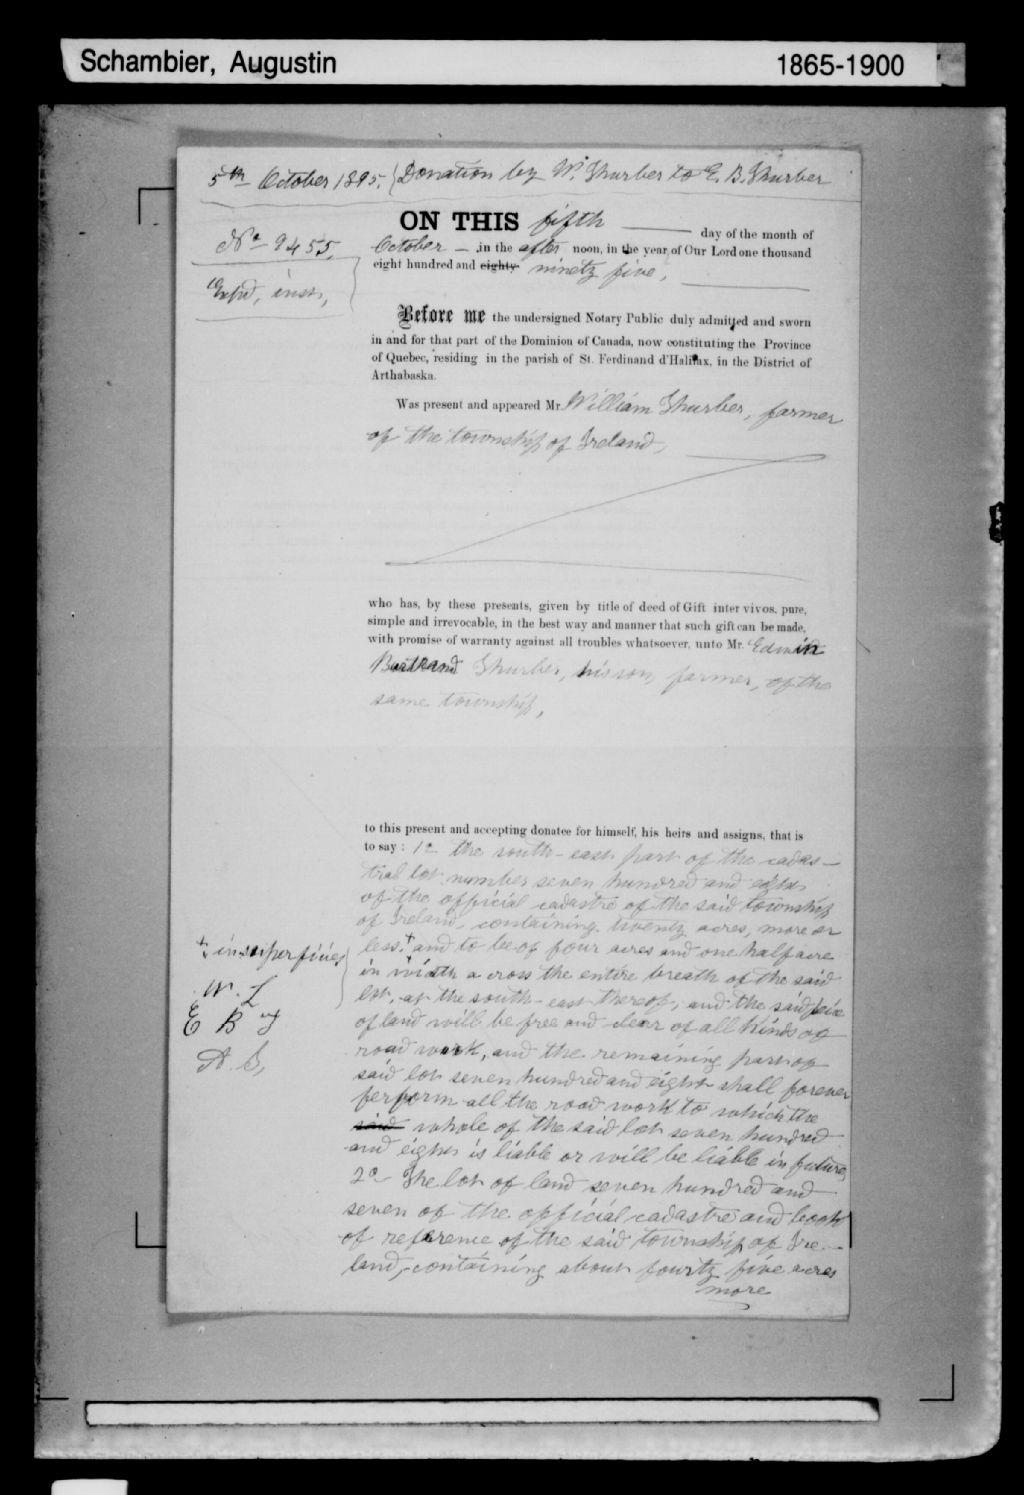 Schambier, Augustin 1865-1900
5th October 1895. Donation by W. Thurber to E. B. Thurber
No 9455.
ON THIS fifth day of the month of
October in the after noon, in the year of Our Lord one thousand
eight hundred and eighty ninety five,
inst,
Before me the undersigned Notary Public duly admitted and sworn
in and for that part of the Dominion of Canada, now constituting the Province
of Quebec, residing in the parish of St. Ferdinand d'Halifax, in the District of
Arthabaska.
Was present and appeared Mr. William Thurber, farmer
of the township of Ireland,
who has, by these presents, given by title of deed of Gift inter vivos, pure,
simple and irrevocable, in the best way and manner that such gift can be made,
with promise of warranty against all troubles whatsoever, unto Mr. Edwin
Thurber, his son, farmer, of the
same township,
to this present and accepting donatee for himself, his heirs and assigns, that is
to say : 1o the south-east part of the cadas-
tral lot number seven hundred and eight
of the official cadastre of the said township
of Ireland, containing twenty acres, more or
less + and to be of four acres and one half acre
in width a cross the entire breath of the said
lot, at the south-east thereof, and the said
of land will be free and clear of all kinds of
road work, and the remaining part of
said lot seven hundred and eight shall forever
perform all the road work to which the
said whole of the said lot seven hundred
and eight is liable or will be liable in future,
2o The lot of land seven hundred and
seven of the official cadastre and book
of reference of the said township of Ire-
land, containing about fourty five acres
more
+ in superficies
E B
A. S,